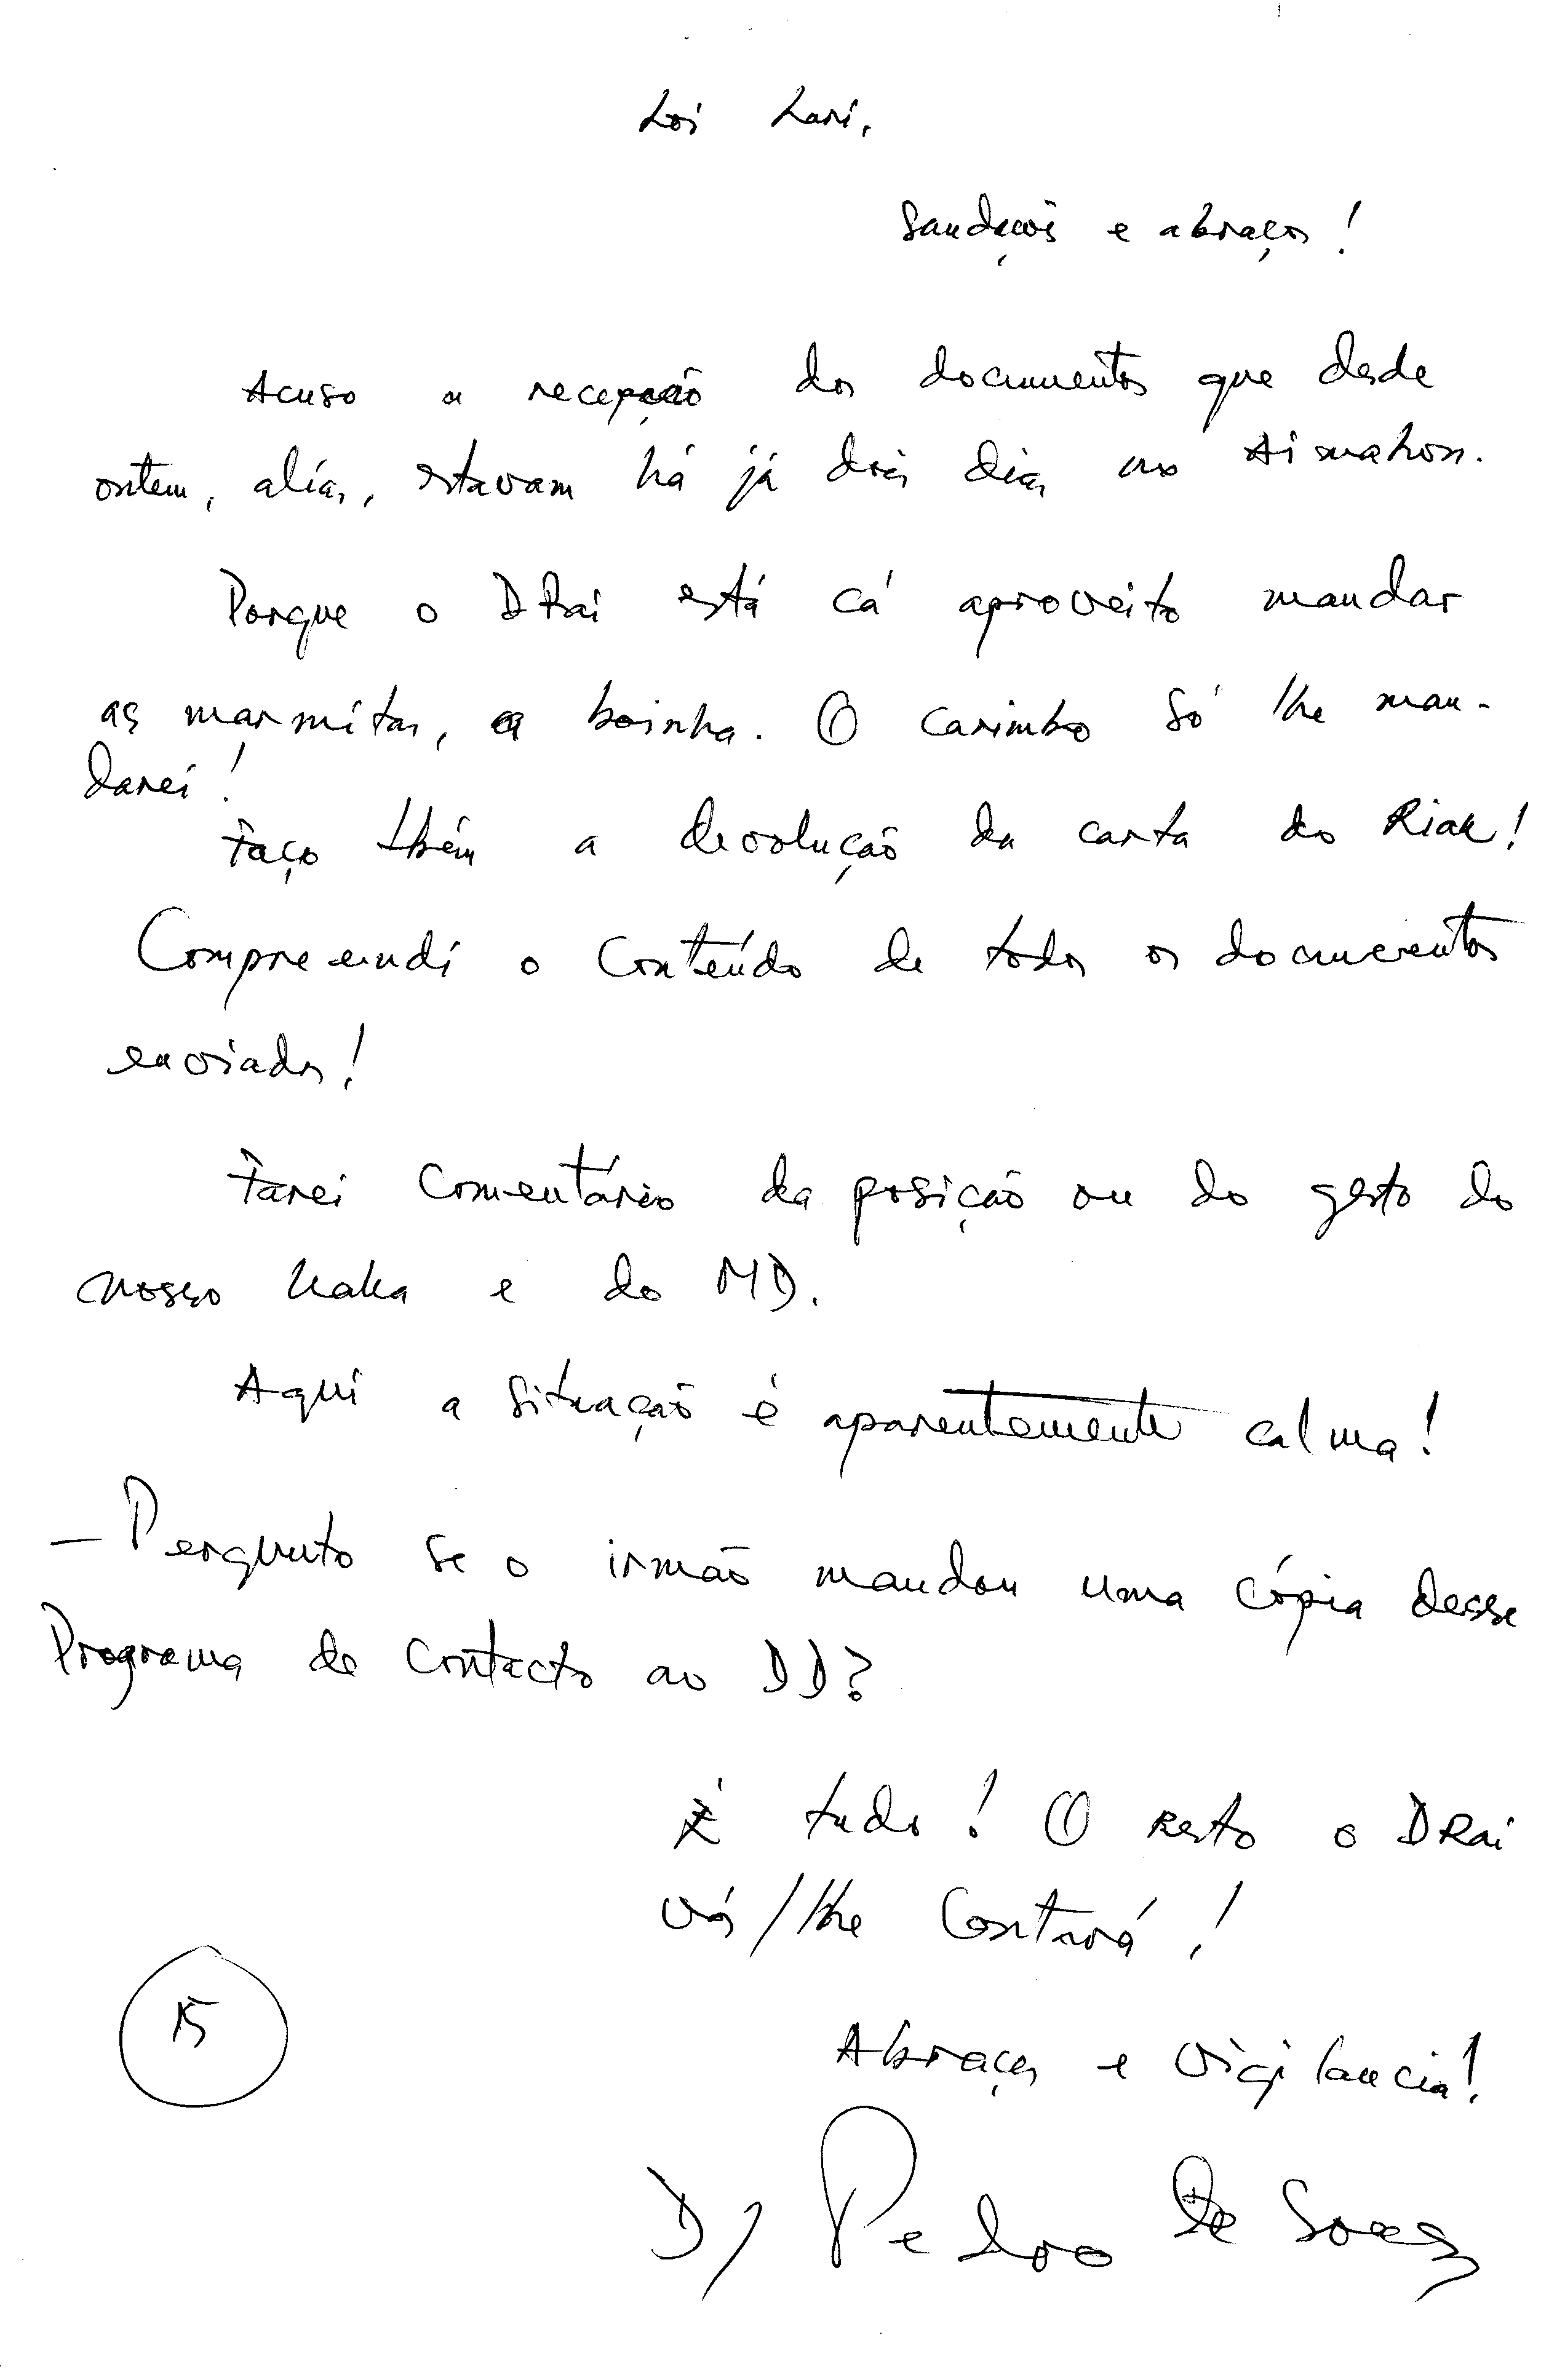 Loi Lari,
Saudações e abraços!
Acuso a recepção dos documentos que desde
ontem, aliás, estavam há já dois dias no Aimahon.
Porque o DRai está cá aproveito mandar
as marmitas, a boinha. O carimbo só lhe man-
darei!
Faço tbém a devolução da carta do Riak!
Compreendi o conteúdo de todos os documentos
enviados!
Farei comentário da posição ou do gesto do
nosso Kaka e do MD.
Aqui a situação é aparentemente calma!
- Pergunto se o irmão mandou uma cópia desse
Programa de Contacto ao DD?
É tudo! O resto o DRai
vos/lhe contará!
15
Abraços e vigilancia!
D/ Pedro de Sousa